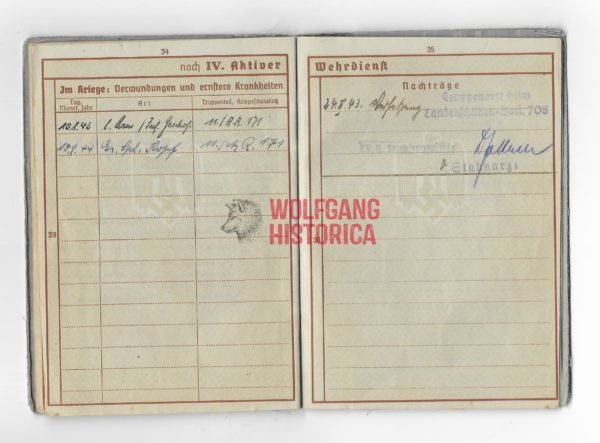 34
noch IV. Aktiver
Im Kriege: Verwundungen und ernstere Krankheiten
Tag, Monat, Jahr
Art
Truppenteil, Kriegsschauplatz
10.8.43 l. Arm / Inf. Geschoß
10.9.44 Gr. Spl. Kopf 171
29
35
Wehrdienst
Nachträge
24. 43.
Truppenarzt beim
Landesschützen-Batl. 708
Stabsarzt
30
WOLFGANG
HISTORICA